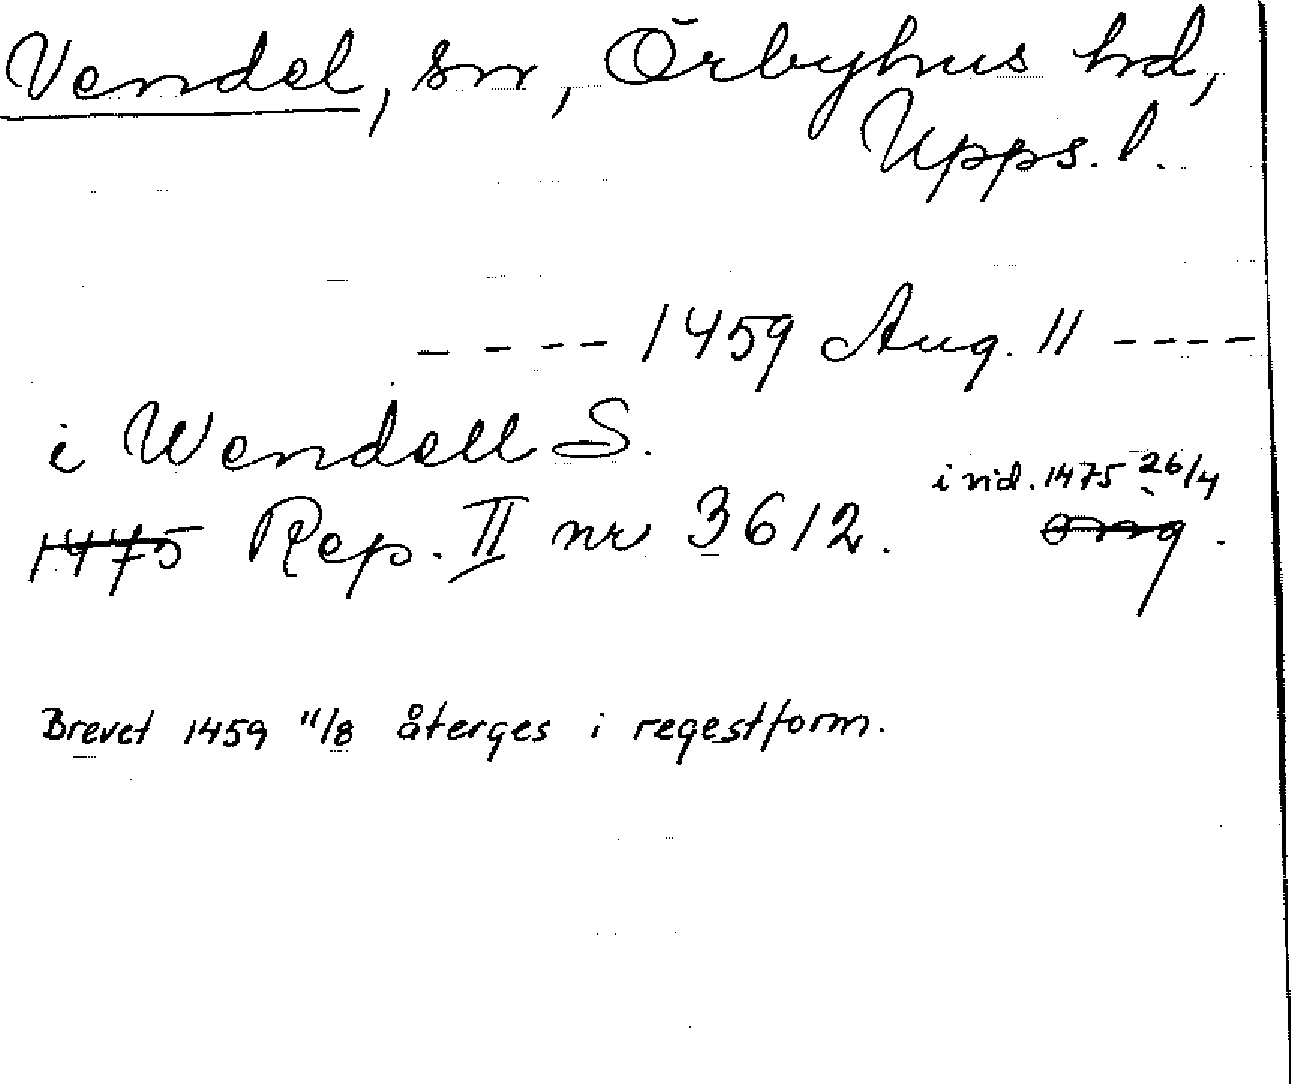 Vendel, sn, Örbyhus hd,
Upps. l.
---- 1459 Aug. 11 ----
i Wendell S.
i vid. 1475 26/4
1475 Rep. II nr 3612. orig.
Brevet 1459 11/8 återges i regestform.